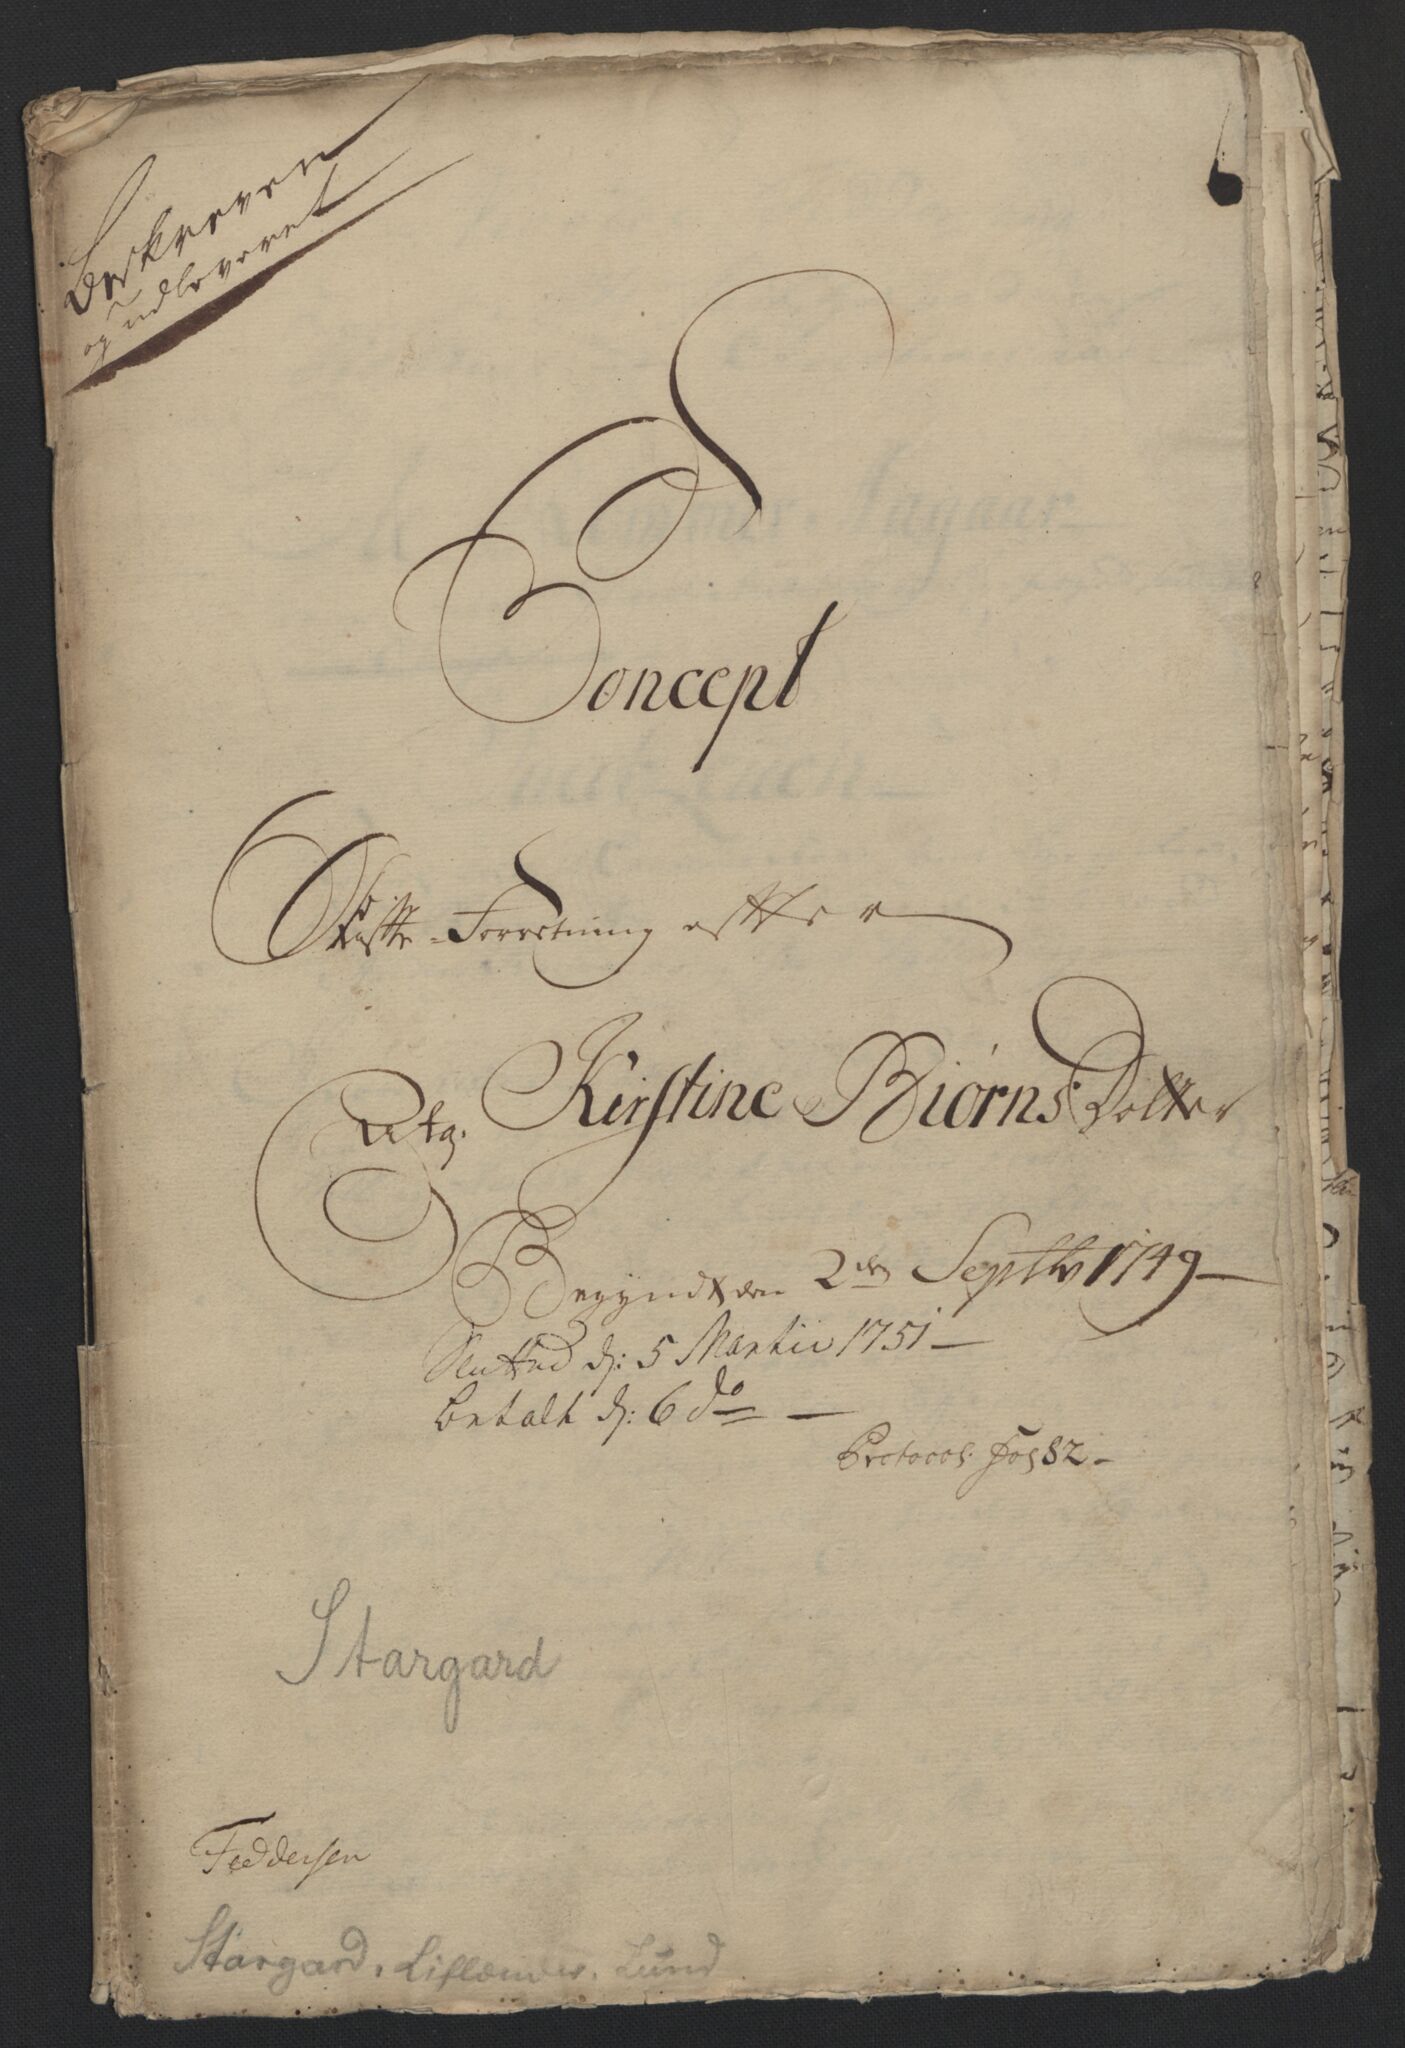 Beskreven
og udleveret
Concept
Skifte-Forretning effter
Kirstine Biørns Dotter
Begyndt den 2den Septbr 1749
Slutted d: 5 Martii 1751
betalt d: 6 do
Protocol fol 82
Stargard
Feddersen
Stargard, Liflænder, Lund